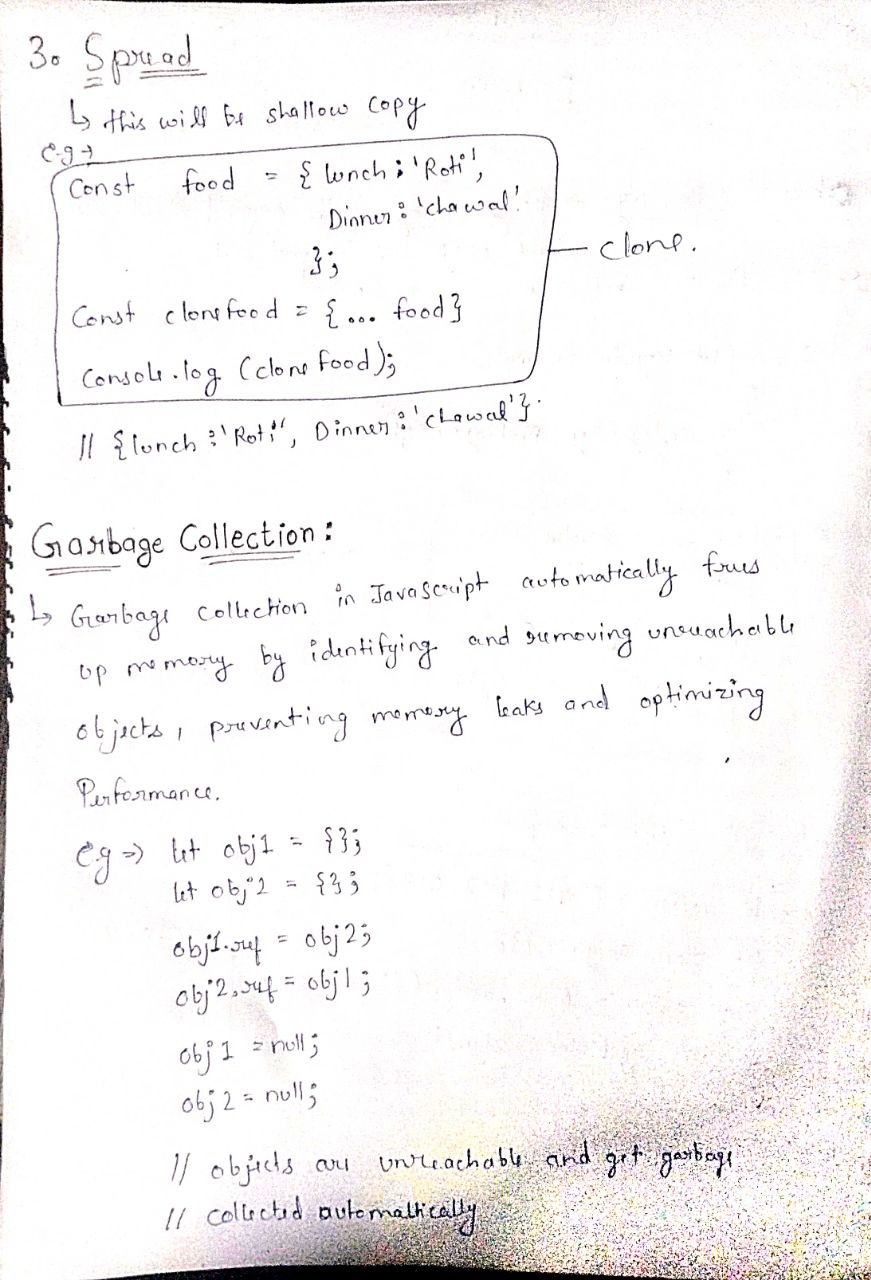 3. Spread
↳ this will be shallow copy
e.g →
Const food = { lunch : 'Roti',
Dinner : 'chawal'
};
Const clonefood = {... food}
Console.log (clonefood);
clone.
// {lunch : 'Roti', Dinner : 'chawal'}.
Garbage Collection :
↳ Garbage collection in Javascript automatically frees
up memory by identifying and removing unreachable
objects, preventing memory leaks and optimizing
Performance.
e.g ⇒ let obj1 = {};
let obj2 = {};
obj1.ref = obj2;
obj2.ref = obj1;
obj1 = null;
obj2 = null;
// objects are unreachable and get garbage
// collected automaltically